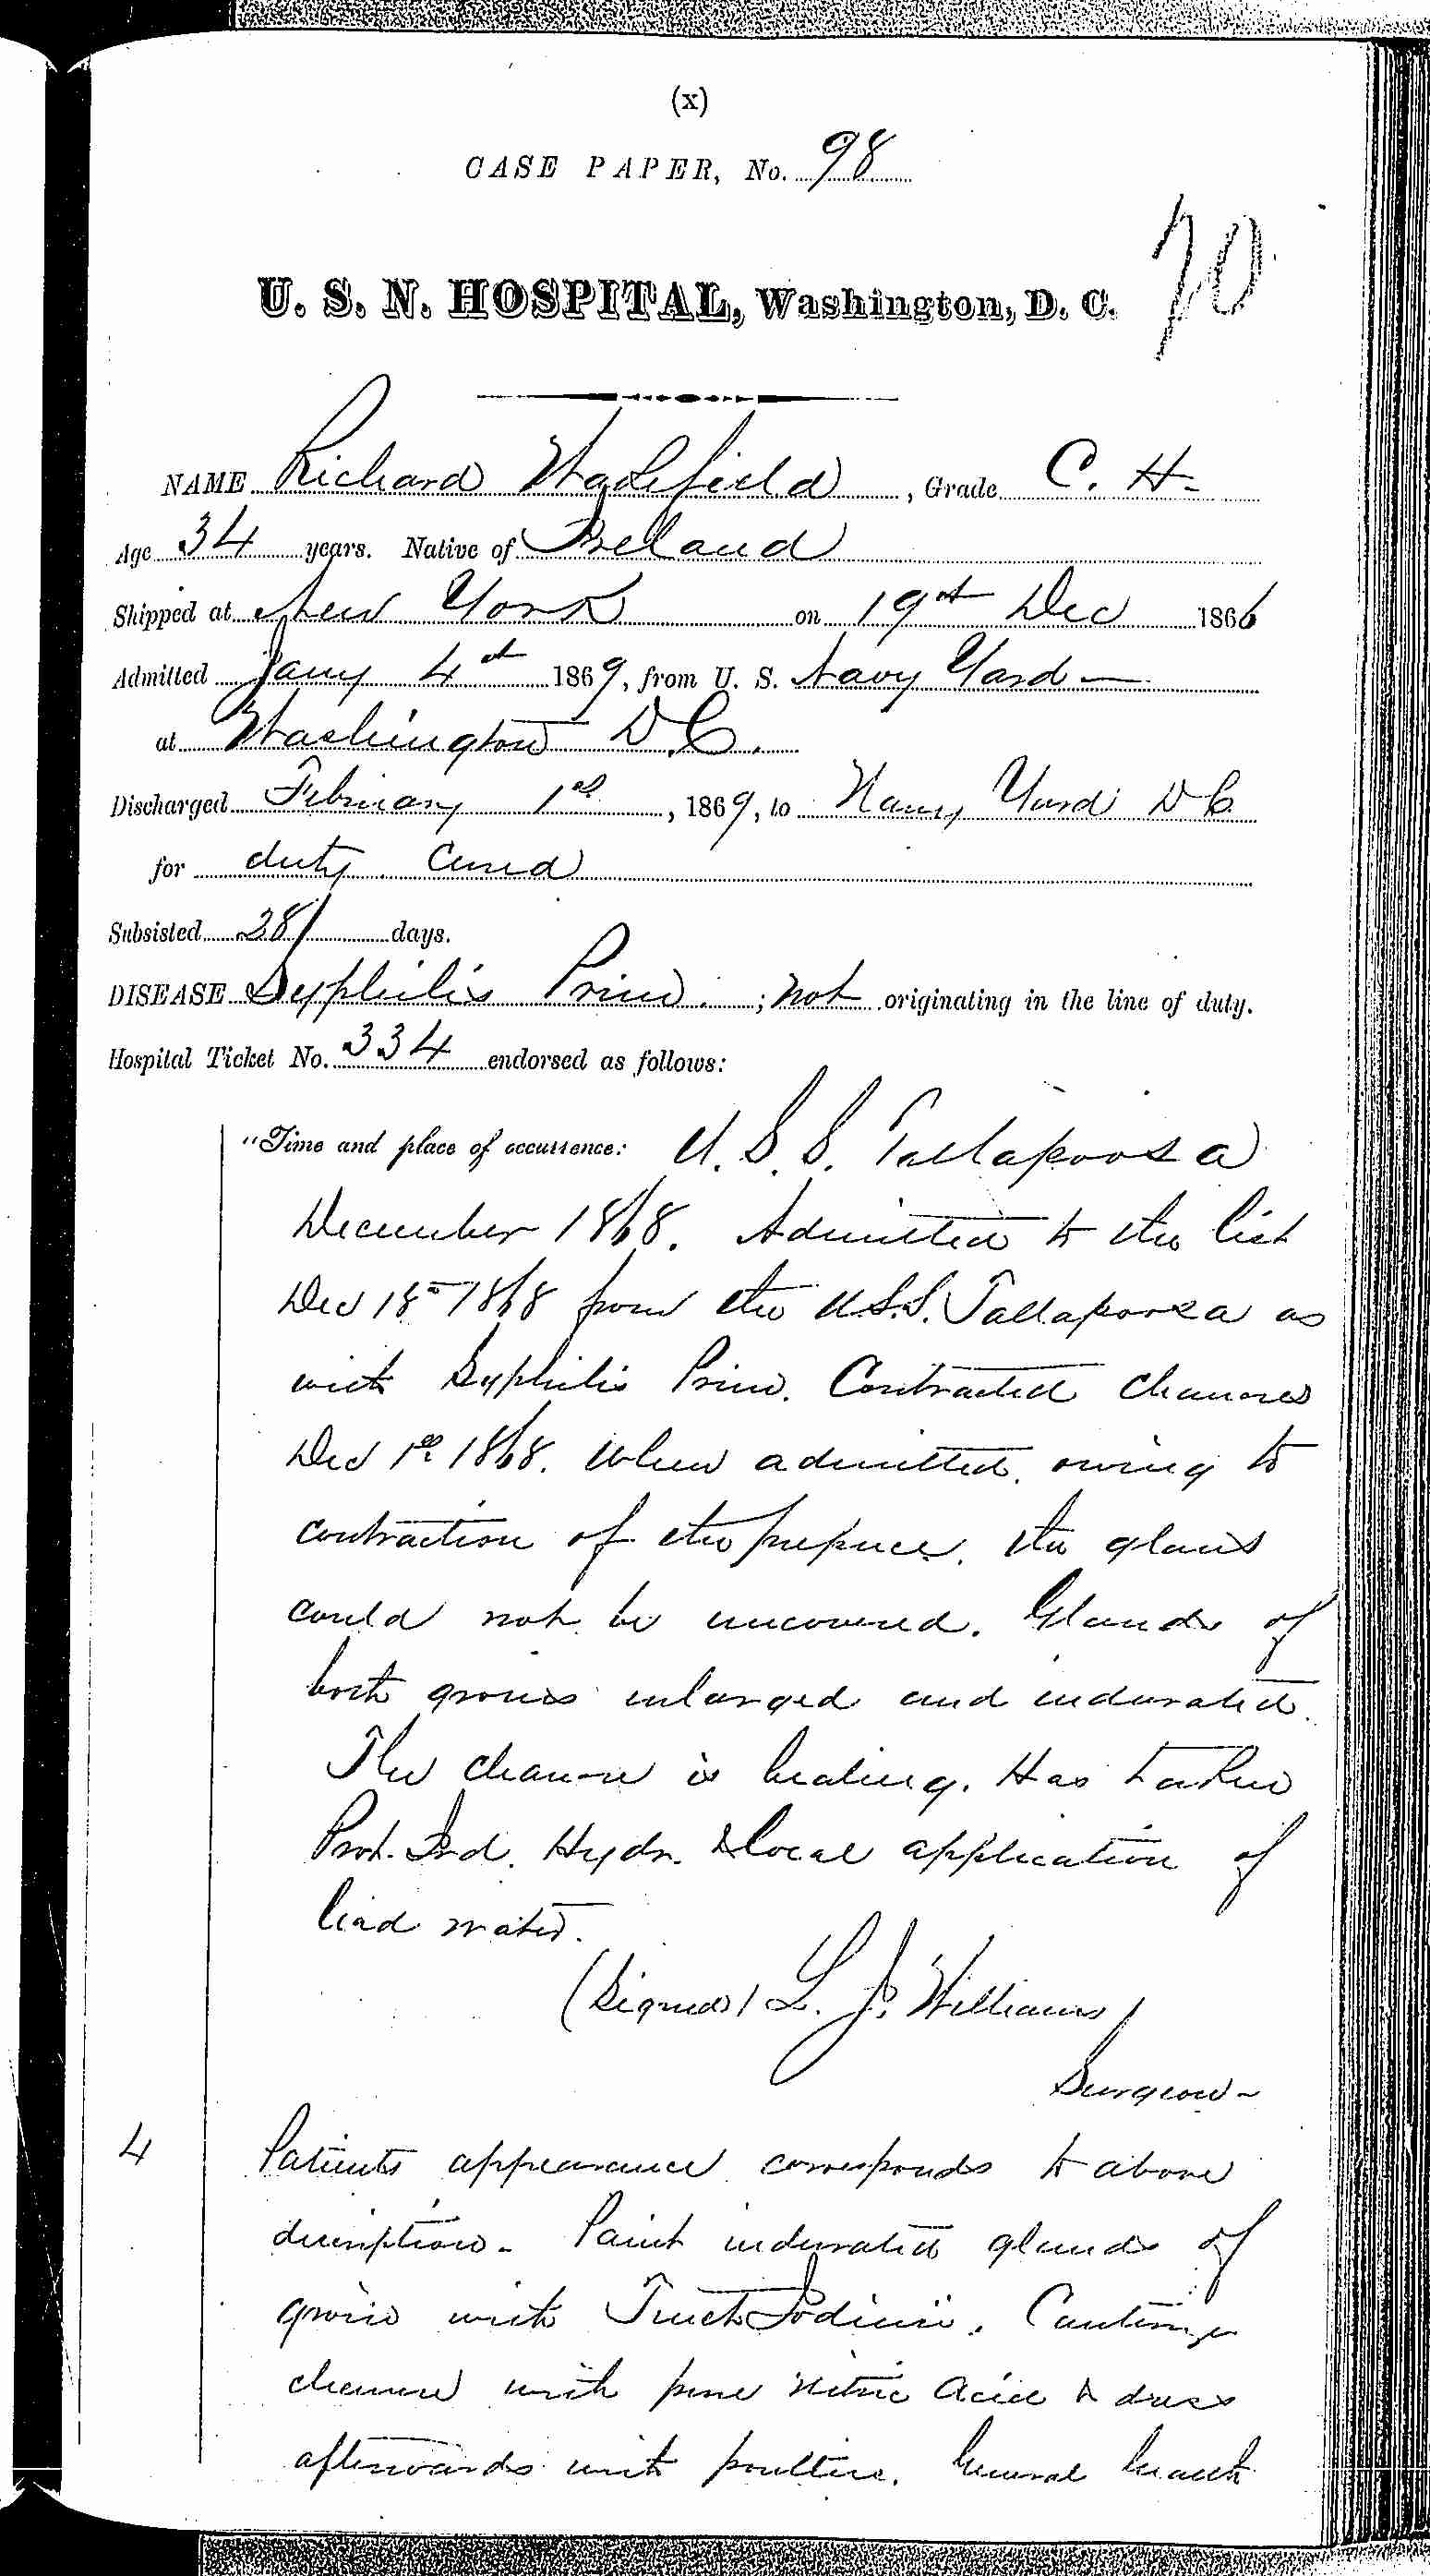 (x)
CASE PAPER, No. 98
70
U. S. N. HOSPITAL, Washington, D. C.
NAME Richard Wakefield, Grade C. H.
Age 34 years. Native of Ireland
Shipped at New York on 19th Dec 1866
Admitted Jany 4th 1869, from U. S. Navy Yard —
at Washington D.C.
Discharged February 1st, 1869, to Navy Yard D C
for duty. Cured
Subsisted 28 days.
DISEASE Syphilis Prim.; not originating in the line of duty.
Hospital Ticket No. 334 endorsed as follows:
"Time and place of occurrence: U. S. S. Tallapoosa
December 1868. Admitted to the list
Dec 18th 1868 from the U.S.S. Tallapoosa as
with Syphilis Prim. Contracted chancre
Dec 1st 1868. When admitted, owing to
contraction of the prepuce, the glans
could not be uncovered. Glands of
both groins enlarged and indurated.
The chancre is healing. Has taken
Prot. Iod. Hydr. & local application of
lead water.
(Signed) L. J. Williams,
Surgeon -
4 Patients appearance corresponds to above
description - Paint indurated glands of
groin with Tinct Iodinii. Cauterize
chancre with pure Nitric Acid & dress
afterwards with poultice. General health